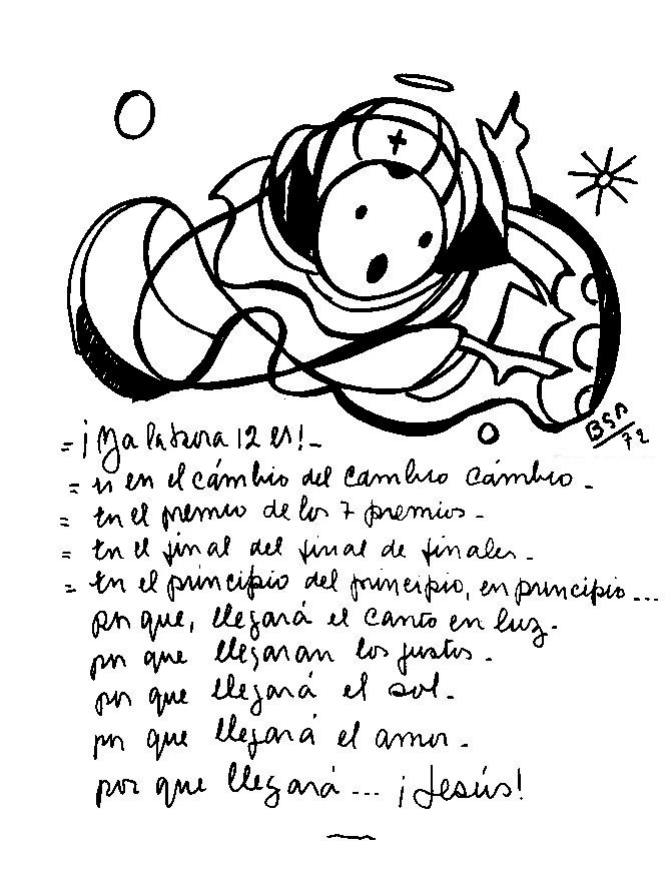 BSP
72
= ¡Ya la hora 12 es! -
= y en el cámbio del cambio cámbio -
= En el premio de los 7 premios -
= En el final del final de finales -
= En el principio del principio, en principio...
por que, llegará el canto en luz.
por que llegaran los justos.
por que llegará el sol.
por que llegará el amor.
por que llegará... ¡Jesús!